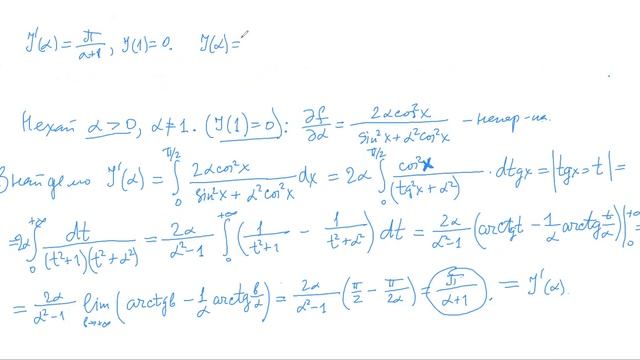 J'(α) = π/(α+1), J(1)=0. J(α)=
Нехай α>0, α≠1. (J(1)=0): ∂f/∂α = 2αcos²x/(sin²x+α²cos²x) – непер-на.
Знайдемо J'(α) = ∫₀^{π/2} 2αcos²x/(sin²x+α²cos²x) dx = 2α ∫₀^{π/2} cos²x/(tg²x+α²) · dtgx = |tgx=t| =
=2α ∫₀^{+∞} dt/((t²+1)(t²+α²)) = 2α/(α²-1) ∫₀^{+∞} (1/(t²+1) - 1/(t²+α²)) dt = 2α/(α²-1) (arctgt - 1/α arctg t/α)|₀^{+∞} =
= 2α/(α²-1) lim_{b→+∞} (arctgb - 1/α arctg b/α) = 2α/(α²-1) (π/2 - π/2α) = π/(α+1). = J'(α).